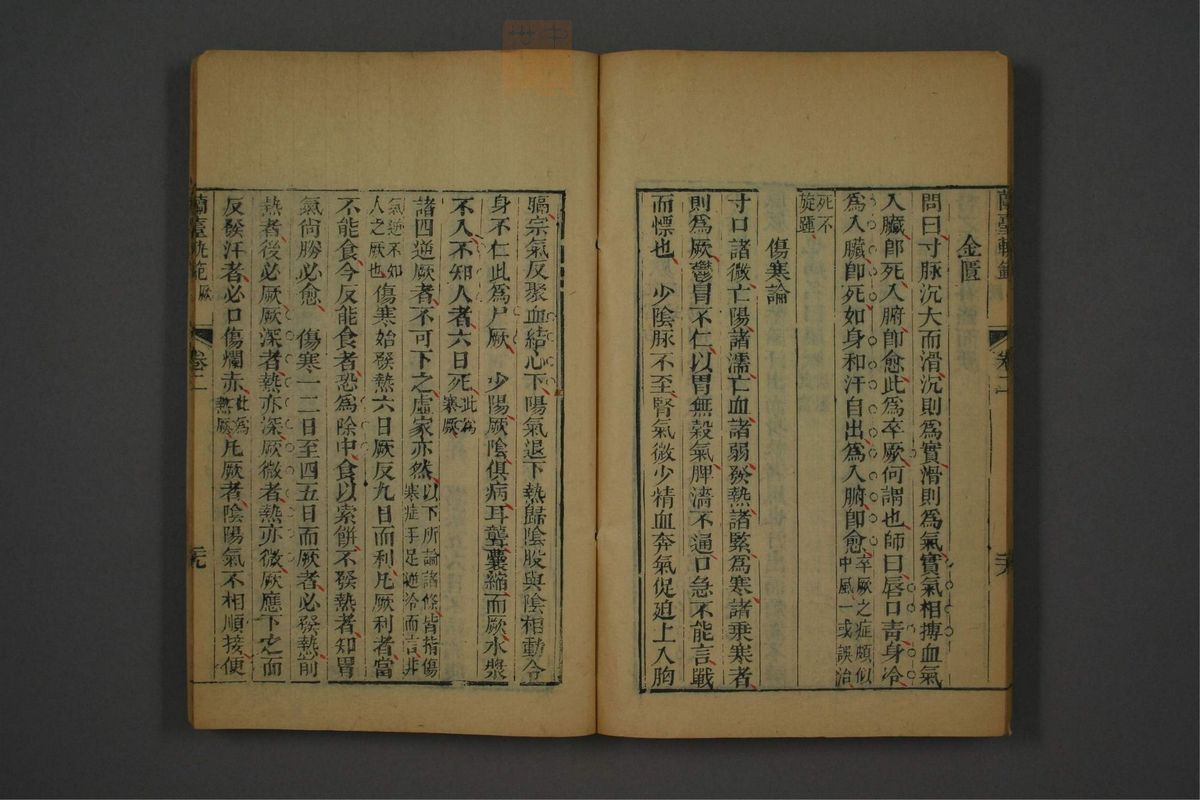 蘭臺軌範
卷二
二十八
金匱
問曰寸脉沉大而滑沉則爲實滑則爲氣實氣相搏血氣
入臟卽死入腑卽愈此爲卒厥何謂也師曰唇口青身冷
爲入臟卽死如身和汗自出爲入腑卽愈卒厥之症頗似中風一或誤治
死不旋踵
傷寒論
寸口諸微亡陽諸濡亡血諸弱發熱諸緊爲寒諸乘寒者
則爲厥鬱冒不仁以胃無穀氣脾濇不通口急不能言戰
而慄也 少陰脉不至腎氣微少精血奔氣促迫上入胸
膈宗氣反聚血結心下陽氣退下熱歸陰股與陰相動令
身不仁此爲尸厥 少陽厥陰俱病耳聾囊縮而厥水漿
不入不知人者六日死此爲寒厥
諸四逆厥者不可下之虛家亦然以下所論諸條皆指傷寒症手足逆冷而言非
氣逆不知人之厥也 傷寒始發熱六日厥反九日而利凡厥利者當
不能食今反能食者恐爲除中食以索餅不發熱者知胃
氣尙勝必愈 傷寒一二日至四五日而厥者必發熱前
熱者後必厥厥深者熱亦深厥微者熱亦微厥應下之而
反發汗者必口傷爛赤此爲熱厥 凡厥者陰陽氣不相順接便
蘭臺軌範 厥
卷二
二十九